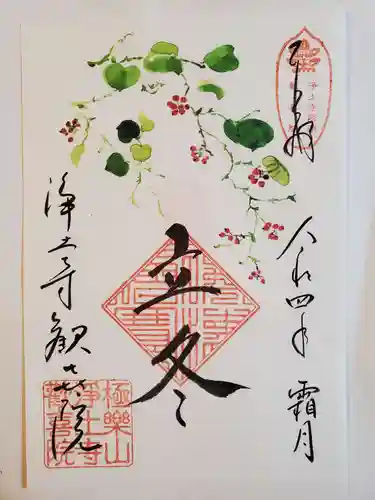 奉拝
令和四年 霜月
立冬
浄土寺 観喜院
極樂山
浄土寺
歓喜院